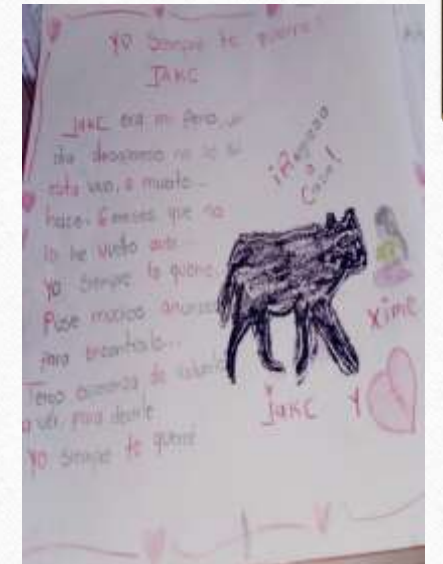 YO Siempre te querre!
JAKC
JAKC era mi perro, un
dia desaparecio no se si
esta vivo, o muerto...
hace 6 meses que no
lo he visto
Yo Siempre te querre...
Puse muchos anuncios
para encontrarlo...
Tengo esperanza de
a ver para decirle
YO Siempre te querré
¡Regreso
a
Casa!
xime
JaKC Y